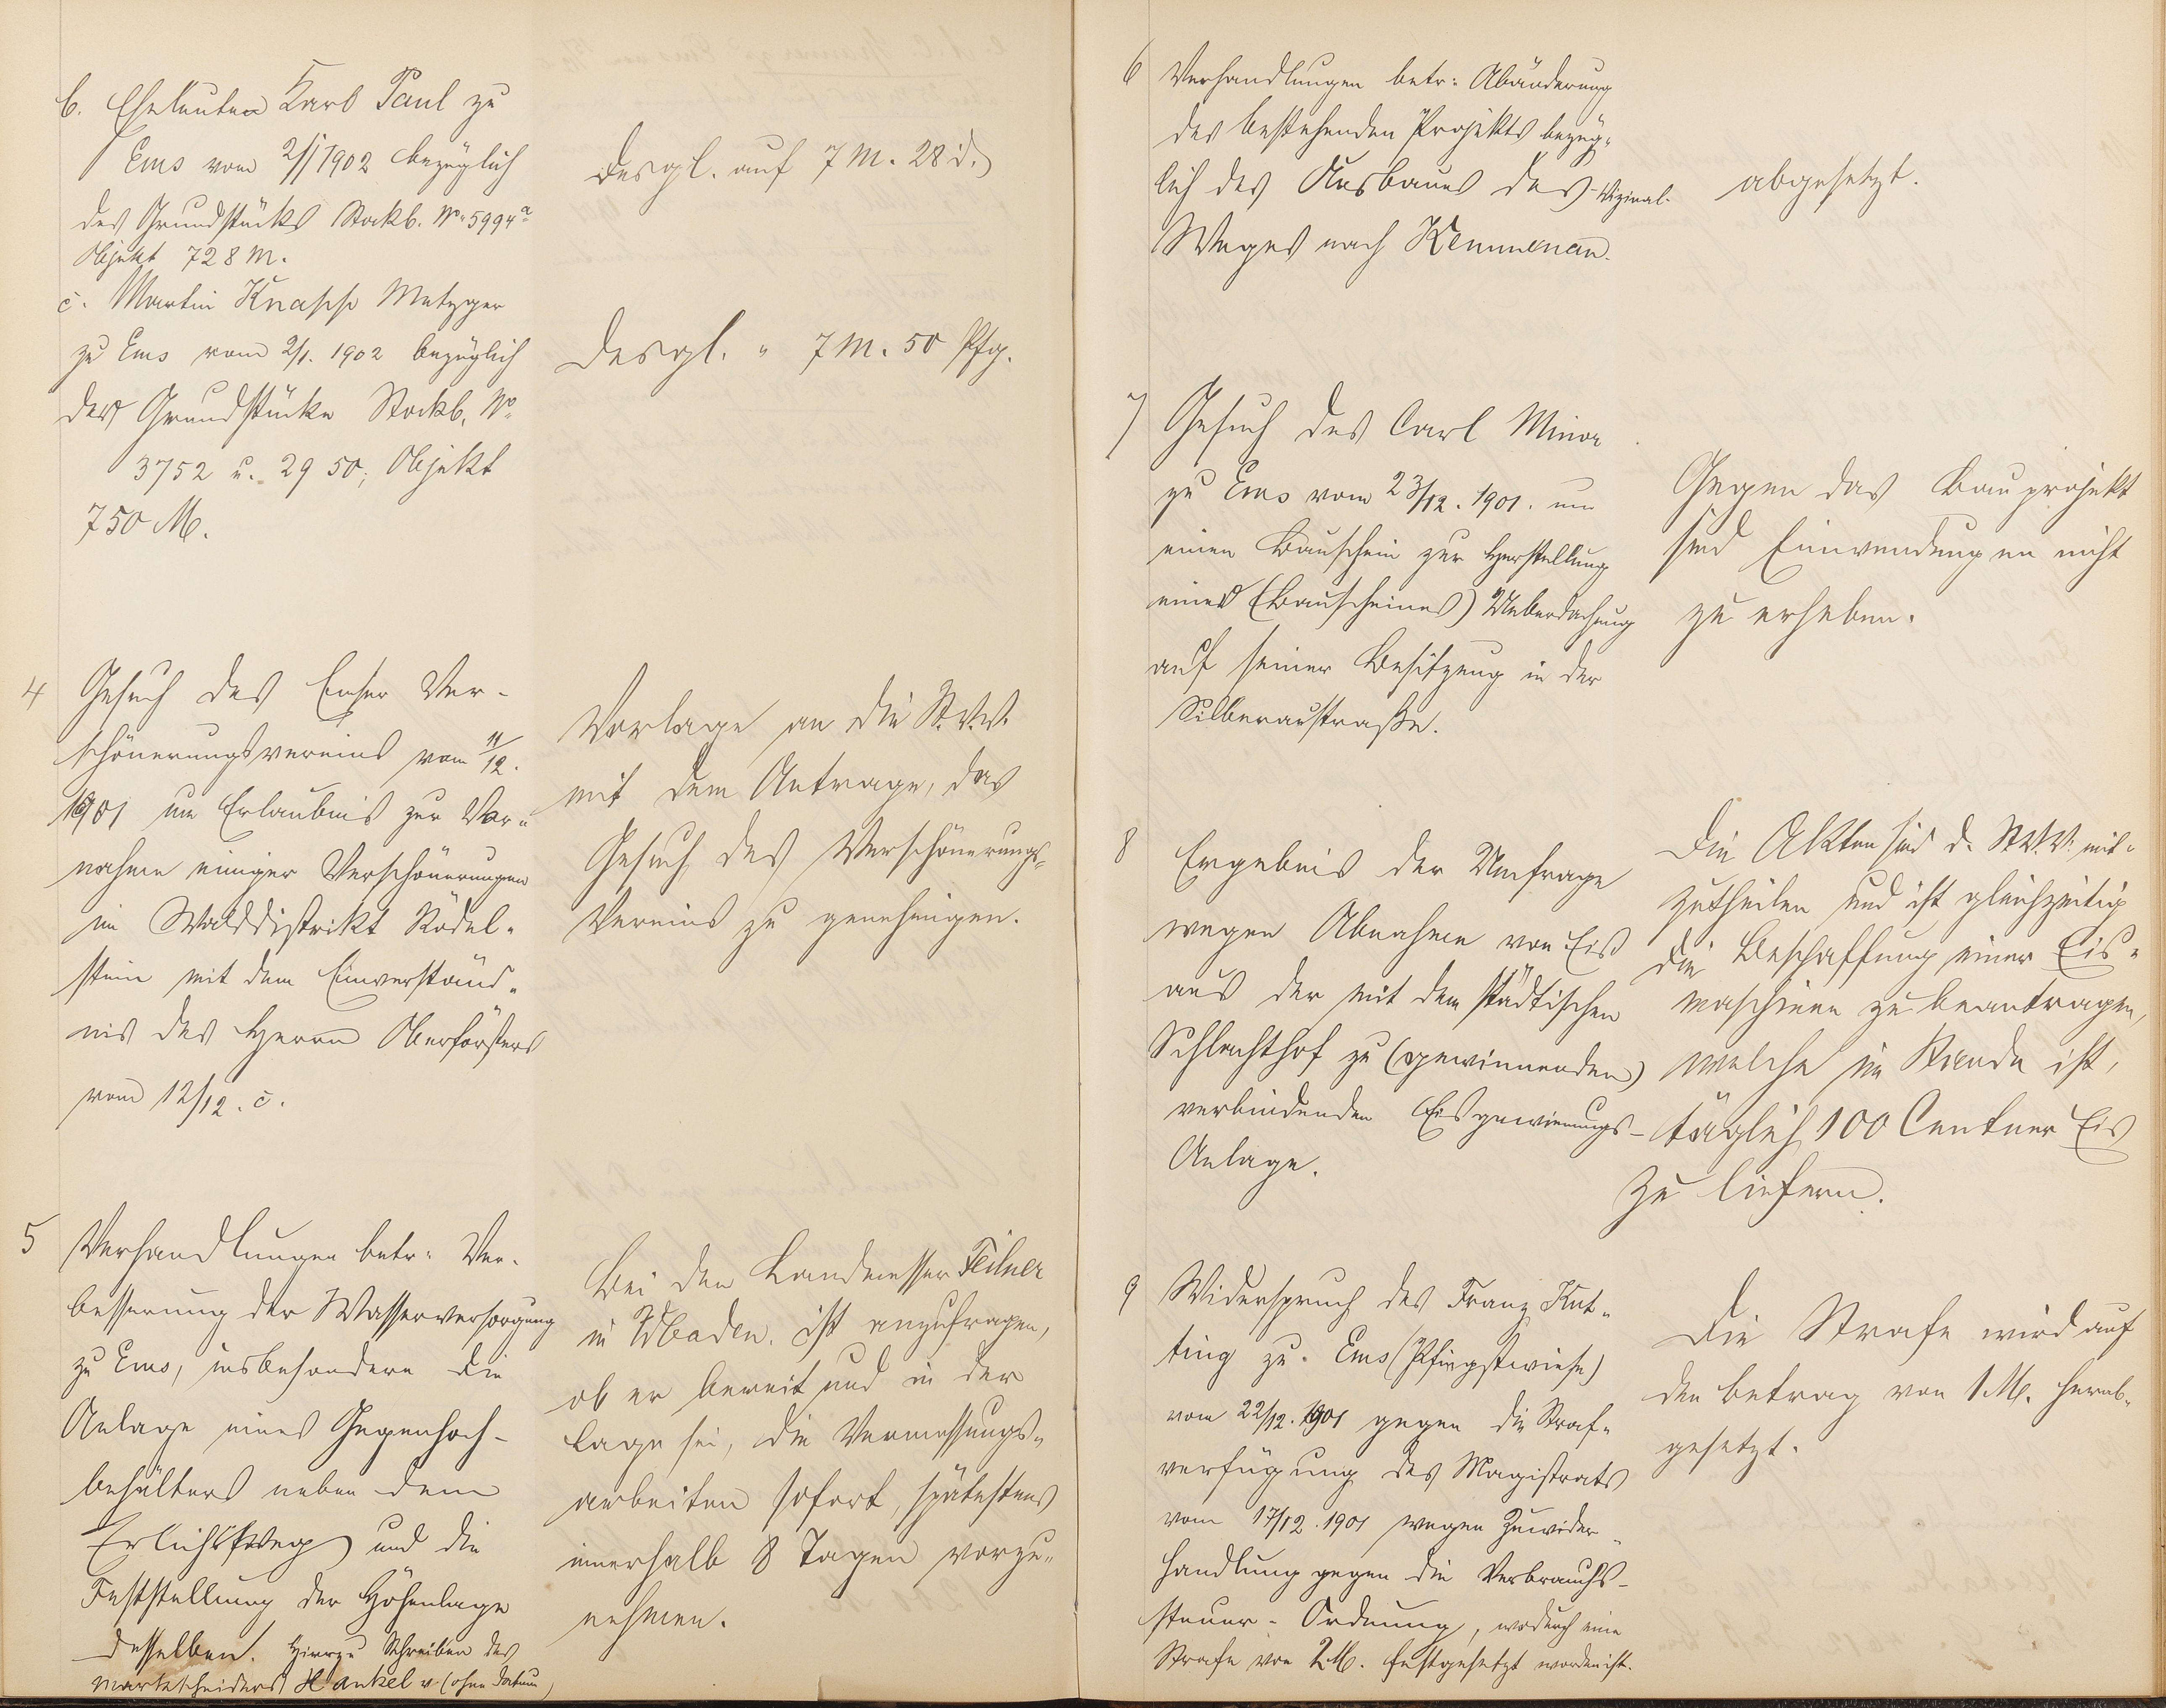 b. Eheleuten Karl Paul zu
Ems vom 2/1 1902 bezüglich
des Grundstücks Stockb. No 5994a
Objekt 728 M.
desgl. auf 7 M. 28 d.
c. Martin Knapp Metzger
zu Ems vom 2/1. 1902 bezüglich
der Grundstücke Stockb. No
3752 u. 2950; Objekt
750 M.
desgl. " 7 M. 50 Pfg.
4 Gesuch des Emser Ver-
schönerungsvereins vom 11/12.
1901 um Erlaubnis zur Vor-
nahme einiger Verschönerungen
im Walddistrikt Rödel-
stein mit dem Einverständ-
nis des Herrn Oberförsters
vom 12/12. c.
Vorlage an die St.V.V.
mit dem Antrage, das
Gesuch des Verschönerungs-
Vereins zu genehmigen.
5 Verhandlungen betr. Ver-
besserung der Wasserversorgung
zu Ems, insbesondere die
Anlage eines Gegenhoch-
behälters neben dem
und die
Feststellung der Höhenlage
desselben. Hierzu Schreiben des
Markscheiders Hankel v (ohne Datum)
Bei dem Landmesser Feilner
in Wbaden. ist anzufragen,
ob er bereit und in der
Lage sei, die Vermessungs-
arbeiten sofort, spätestens
innerhalb 8 Tagen vorzu-
nehmen.
6 Verhandlungen betr. Abänderung
des bestehenden Projekts bezüg-
lich des Ausbaues des Vizinal-
Weges nach Kemmenau.
abgesetzt.
7 Gesuch des Carl Minor
zu Ems vom 23/12. 1901. um
einen Bauschein zur Herstellung
einer (Bauscheines) Ueberdachung
auf seiner Besitzung in der
Silberaustraße.
Gegen das Bauprojekt
sind Einwendungen nicht
zu erheben.
8 Ergebnis der Umfrage
wegen Abnahme von Eis
aus der mit dem städtischen
Schlachthof zu (gewinnenden)
verbindenden Eisgewinnungs-
Anlage.
Die Akten sind d. St.V.V. mit-
zutheilen und ist gleichzeitig
die Beschaffung einer Eis-
maschine zu beantragen,
welche im Stande ist,
täglich 100 Centner Eis
zu liefern.
9 Widerspruch des Franz Kut-
ting zu Ems (Pfingstwiese)
vom 22/12. 1901 gegen die Straf-
verfügung des Magistrats
vom 17/12. 1901 wegen Zuwider-
handlung gegen die Verbrauchs-
steuer-Ordnung, wodurch eine
Strafe von 2 M. festgesetzt worden ist.
Die Strafe wird auf
den Betrag von 1 M. herab-
gesetzt.